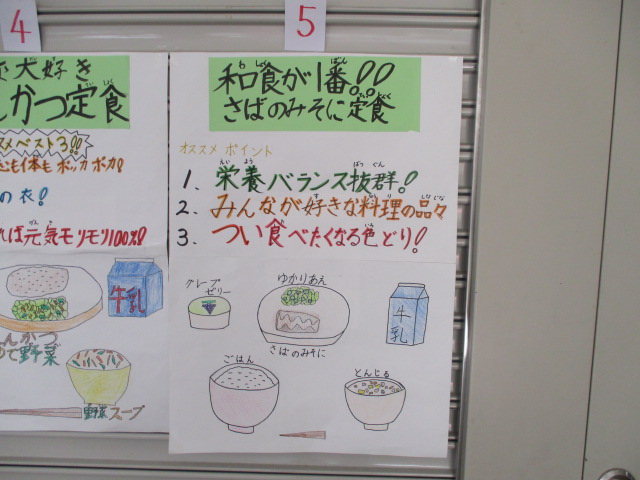 4
大好き
かつ定食
ベスト3!!
も体も ポッカポカ!
の衣!
れば元気モリモリ100%!
牛乳
んかつ
ゆで野菜
野菜スープ
5
和食が1番!!
さばのみそに定食
オススメ ポイント
1. 栄養バランス抜群!
2. みんなが好きな料理の品々
3. つい食べたくなる色どり!
グレープ
ゼリー
ゆかりあえ
さばのみそに
牛乳
ごはん
とんじる